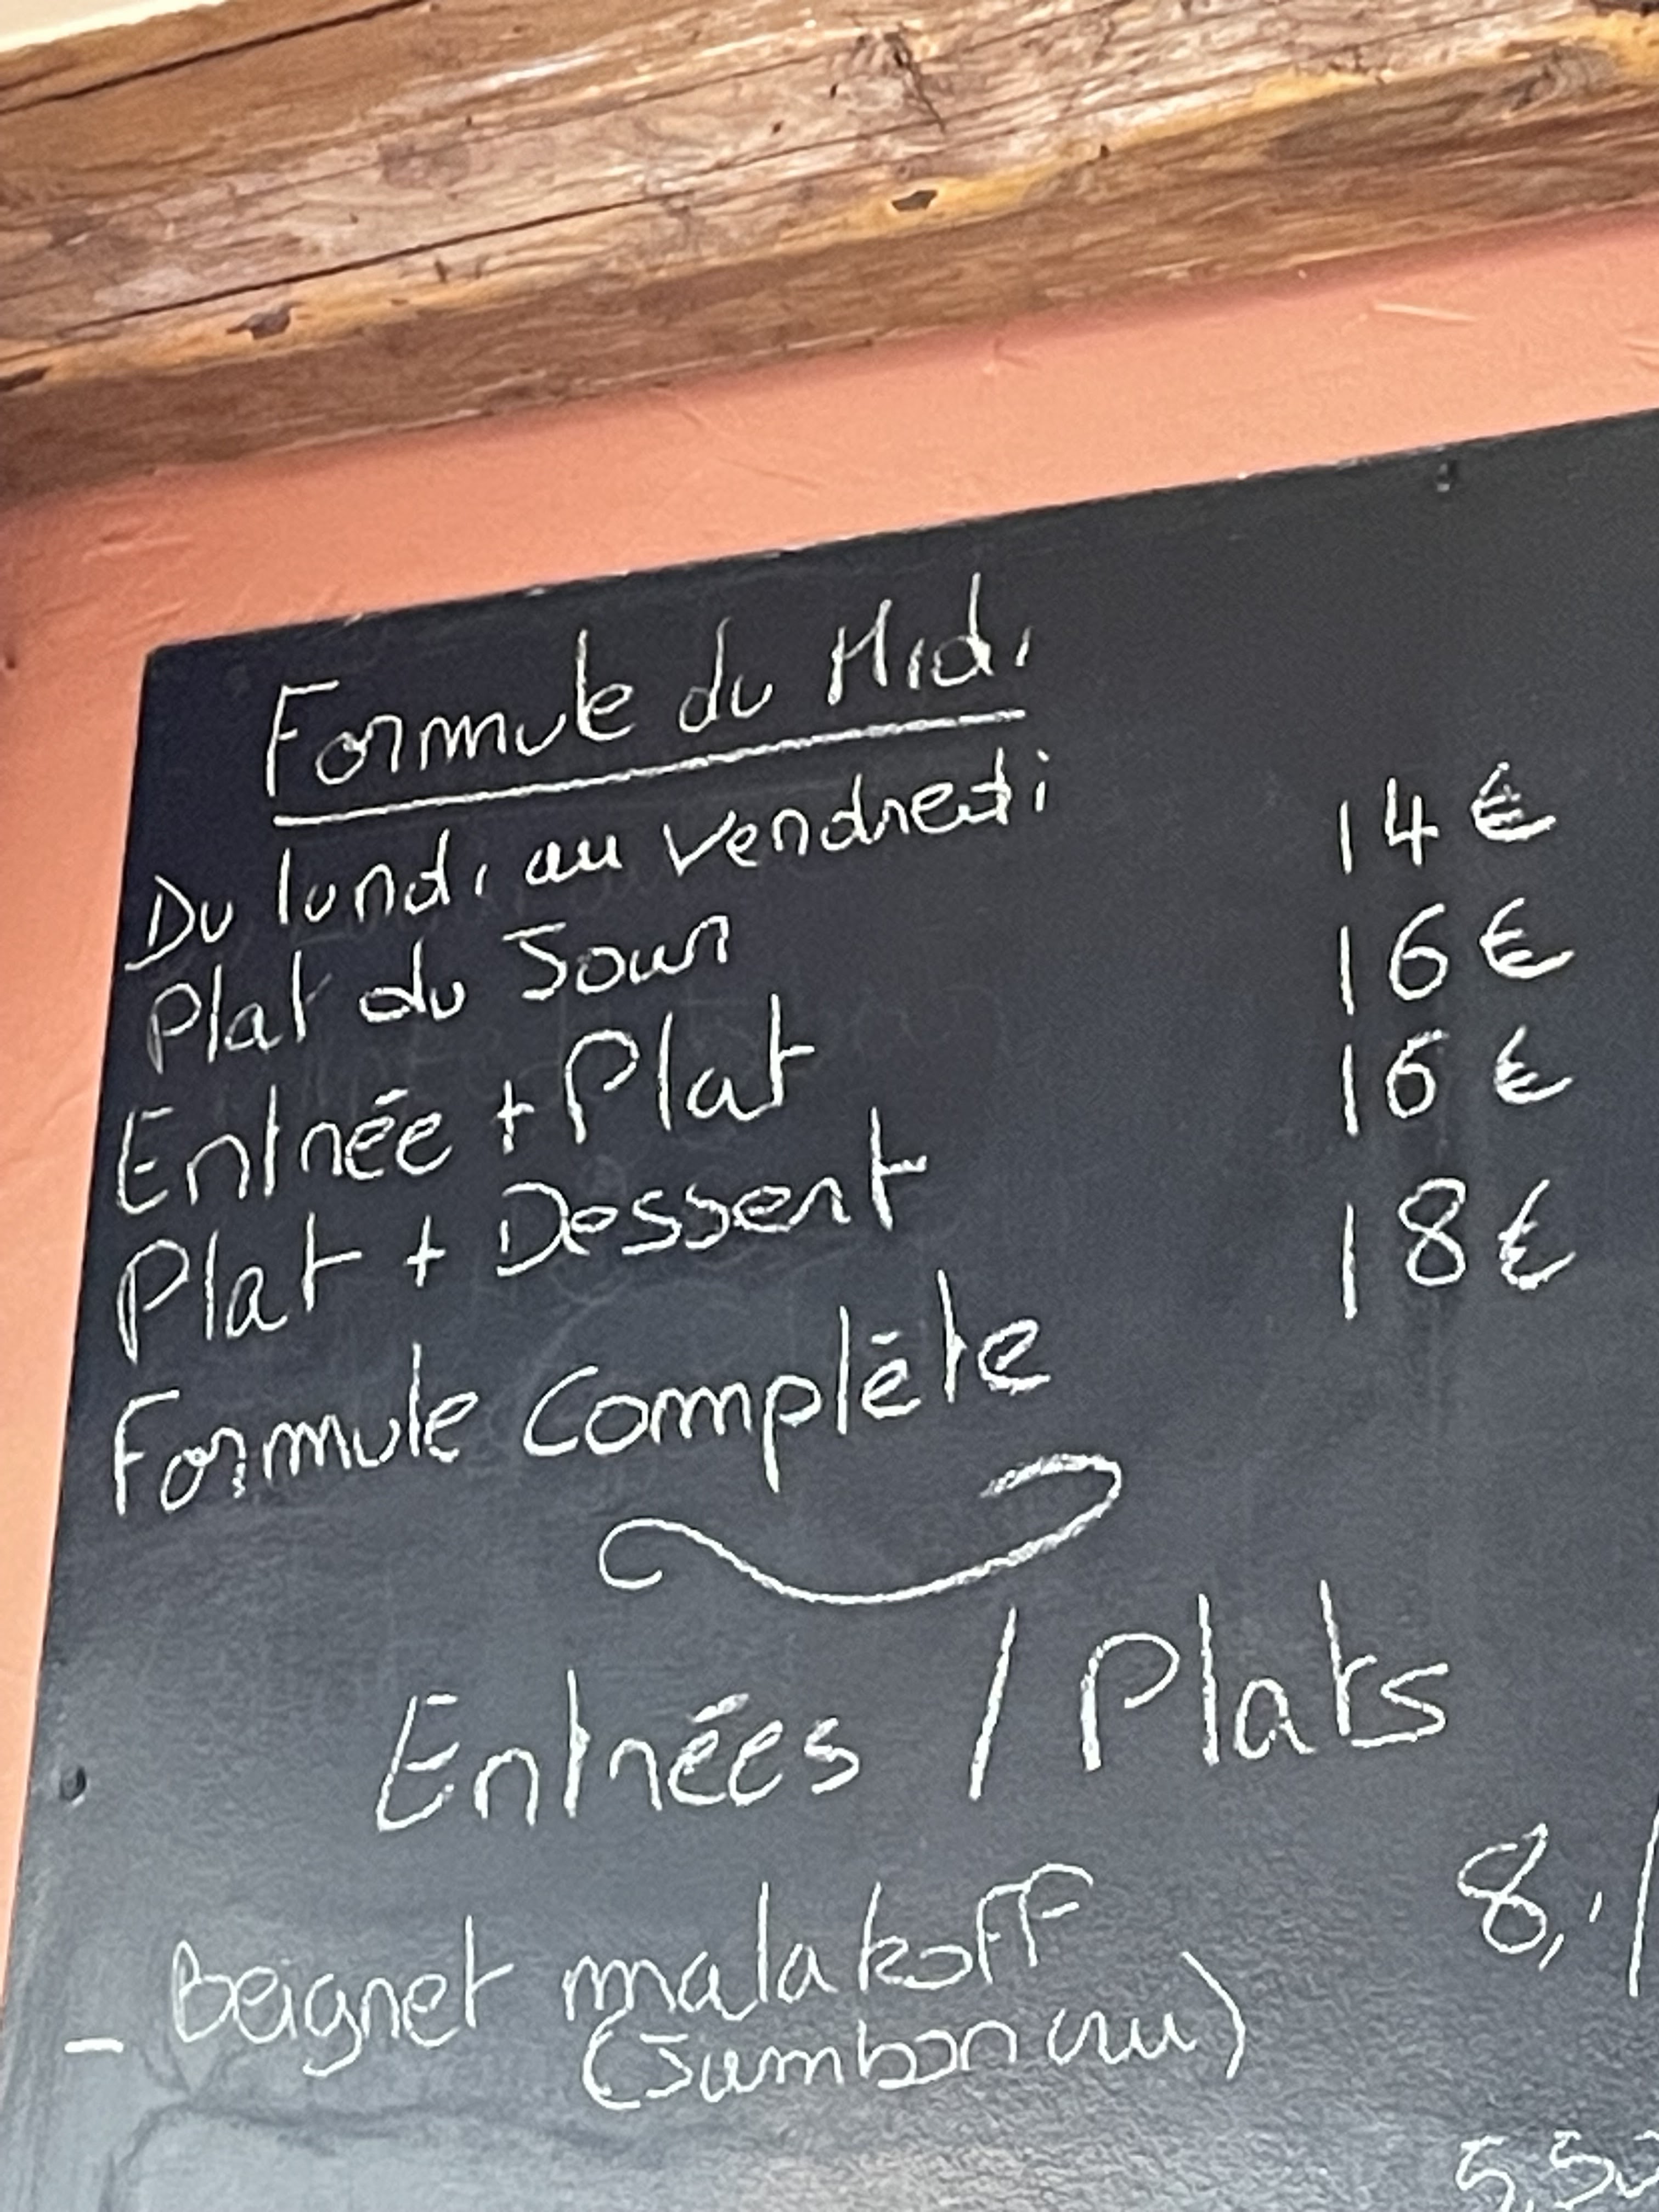 Formule du Midi
Du lundi au vendredi
Plat du Jour 14€
Entrée + Plat 16€
Plat + Dessert 16€
Formule Complète 18€
Entrées / Plats
- Beignet malakoff 8,
(Jambon cru)
5,50